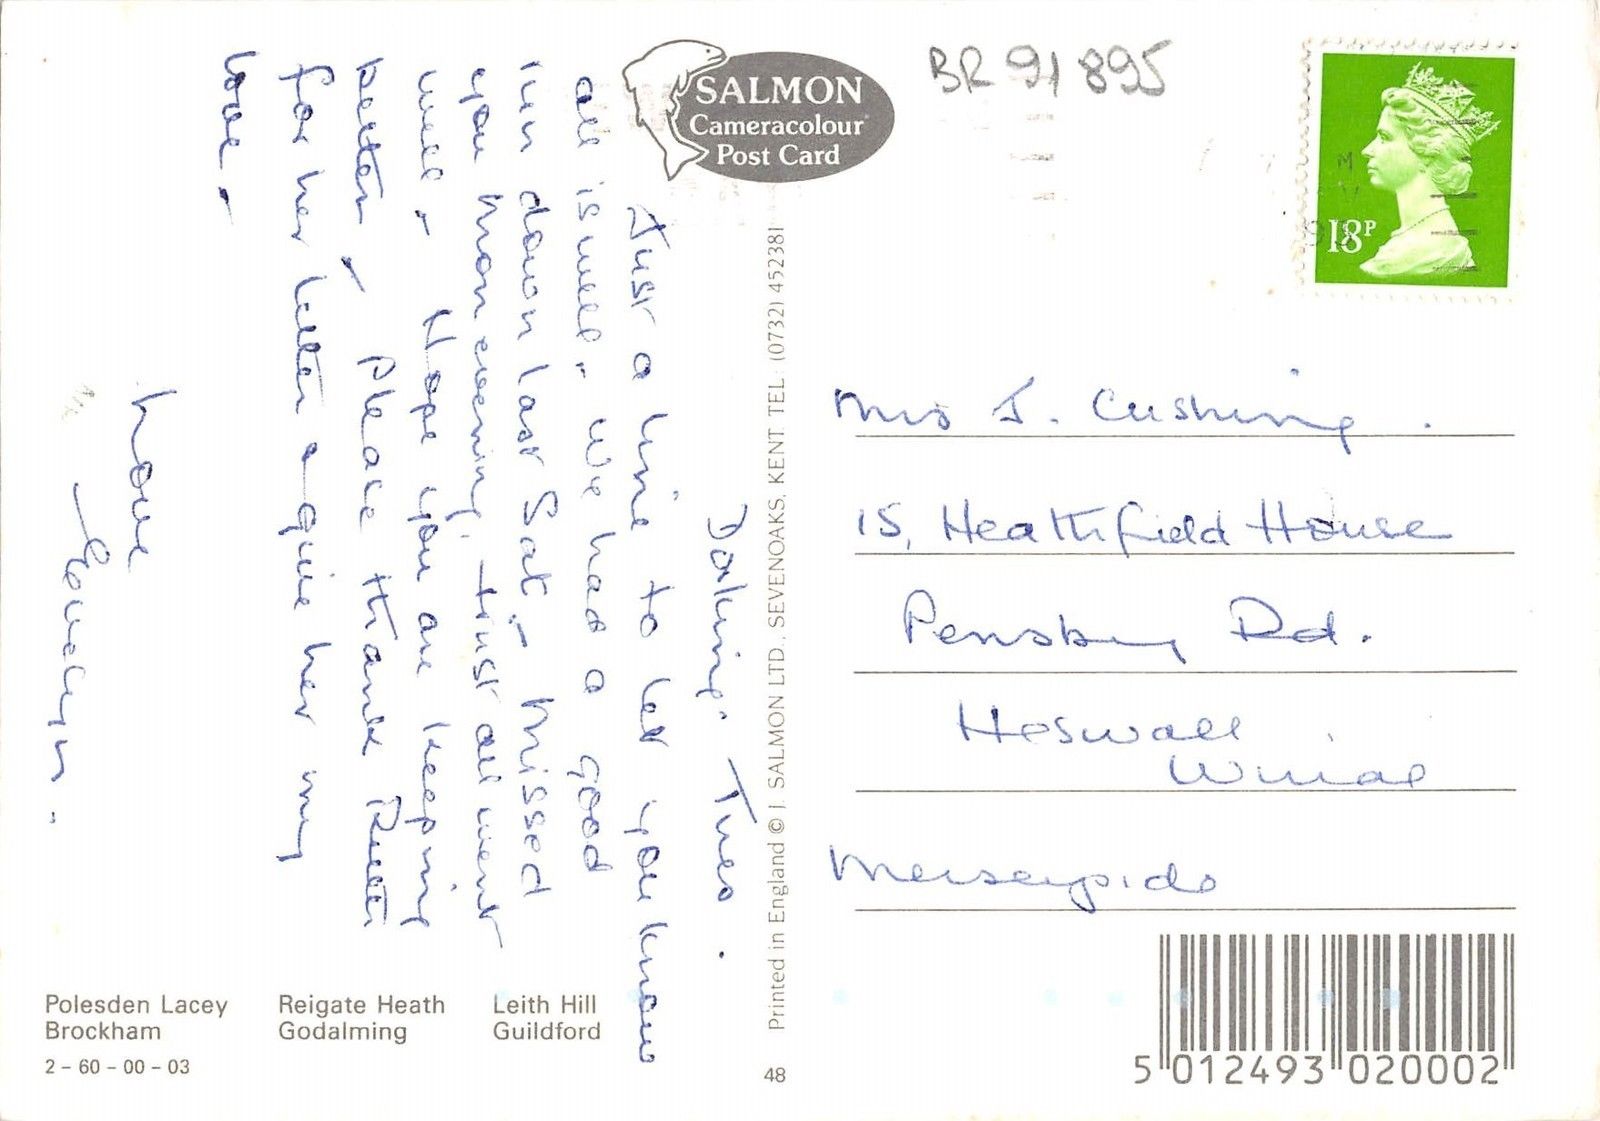 SALMON
Cameracolour
Post Card
BR 91 895
18P
Dorking. Tues.
Just a line to let you know
all is well. We had a good
run down last Sat. Missed
you Mon evening, trust all went
well. Hope you are keeping
better. Please thank Ruth
for her letter & give her my
love.
Love
Evelyn.
Mrs J. Cushing.
15, Heathfield House
Pensby Rd.
Heswall
Wirral
Merseyside
Printed in England © J. SALMON LTD., SEVENOAKS, KENT. TEL: (0732) 452381
48
Polesden Lacey Reigate Heath Leith Hill
Brockham Godalming Guildford
2 - 60 - 00 - 03
5 012493 020002